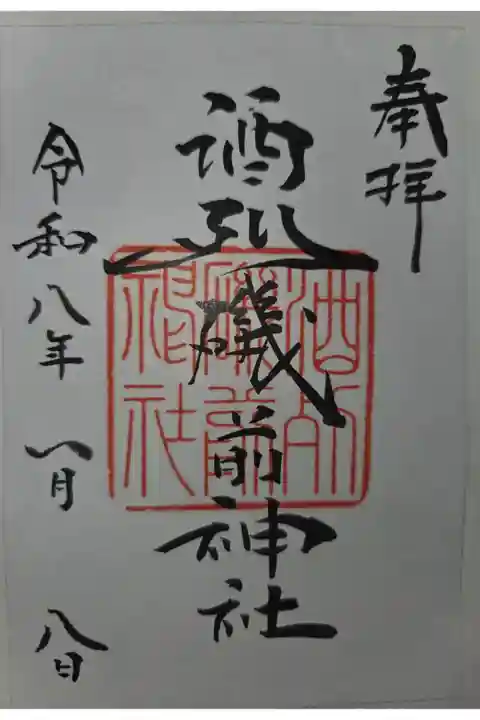 奉拝
酒列磯前神社
令和八年一月八日
酒列
磯前
神社